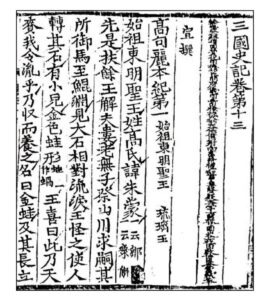 三國史記卷第十三
宣撰
高句麗本紀第一 始祖東明聖王 琉璃王
始祖東明聖王姓高氏諱朱蒙 云鄒 云衆解
先是扶餘王解夫婁老無子祭山川求嗣其
所御馬至鯤淵見大石相對流淚王怪之使人
轉其石有小兒金色蛙形 作蝸 王喜曰此乃天
賚我令胤乎乃收而養之名曰金蛙及其長立